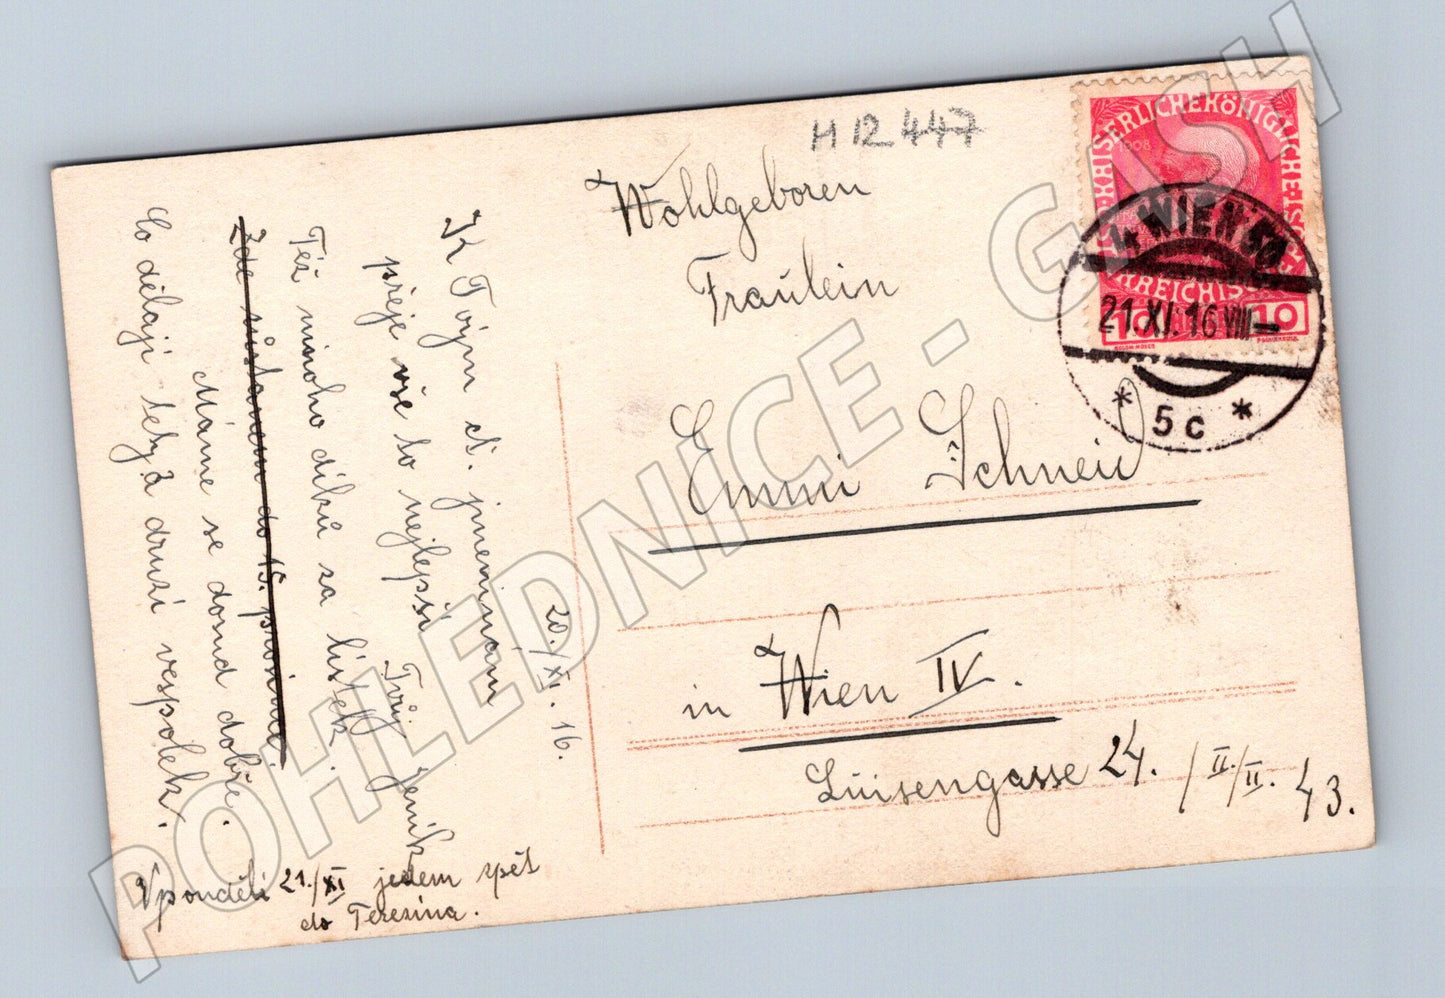 H 12 447
KAISERLICHEKÖNIGLICHE
1908
10
10
4 WIEN 50
21.XI.16 VIII
* 5c *
Wohlgeboren
Fräulein
Emmi Schneid
in Wien IV.
Luisengasse 24. / II./II. 43.
20./XI. 16.
K Tvým ct. jmeninám
přeje vše to nejlepší
Tvůj Jeník
Též mnoho díků za lístek.
Zde zůstanem do 15. prosince.
Máme se dosud dobře.
Co dělají tety a druzí vespolek.
V pondělí 21./XI jedem zpět
do Terezína.
POHLEDNICE - GUSH